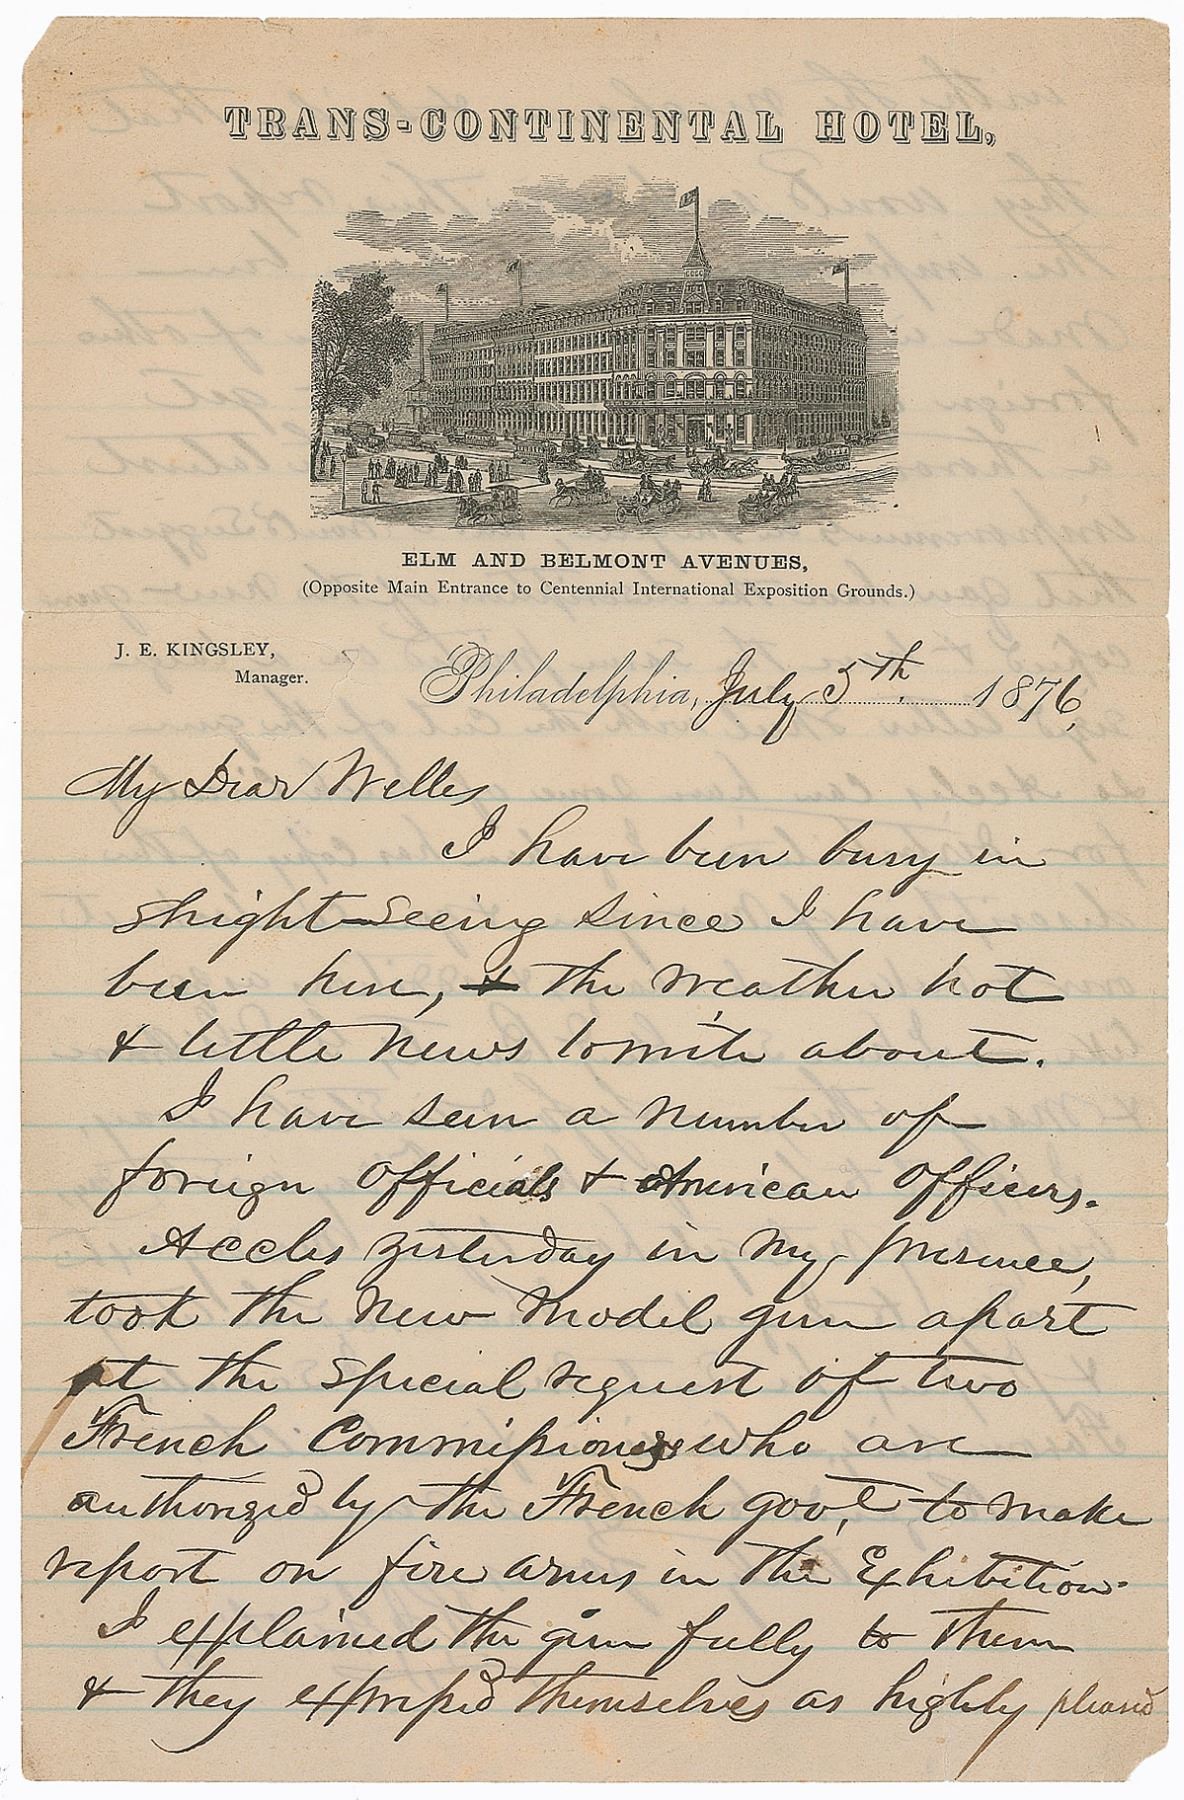 TRANS-CONTINENTAL HOTEL,
ELM AND BELMONT AVENUES,
(Opposite Main Entrance to Centennial International Exposition Grounds.)
J. E. KINGSLEY,
Manager.
Philadelphia, July 5th. 1876,
My Dear Welles
I have been busy in
shight-Seeing since I have
been here, & the weather hot
& little news to write about.
I have seen a number of
foreign officials & American officers.
Accles yesterday in my presence,
took the new model gun apart
at the special request of two
French Commissioners who are
authorized by the French gov't to make
report on fire arms in the Exhibition.
I explained the gun fully to them
& they expressd themselves as highly pleased